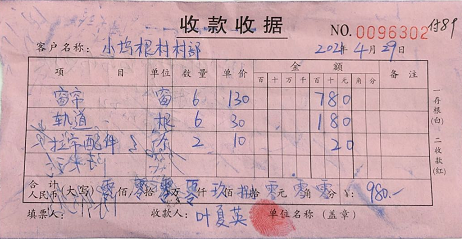 收款收据 NO.0096302 付89
客户名称：小坞根村村部 2024年4月29日
项 目 单位 数量 单价 金 额 备注
百 十 万 千 百 十 元 角 分
窗帘 窗 6 130 780
轨道 根 6 30 180
配件 2 10 20
合计人民币(大写) 零佰 零拾 零万 零仟 玖佰 捌拾 零元 零角 零分 ¥:980.-
填票人： 收款人：叶夏英 单位名称（盖章）
一存根(白) 二收款(红)